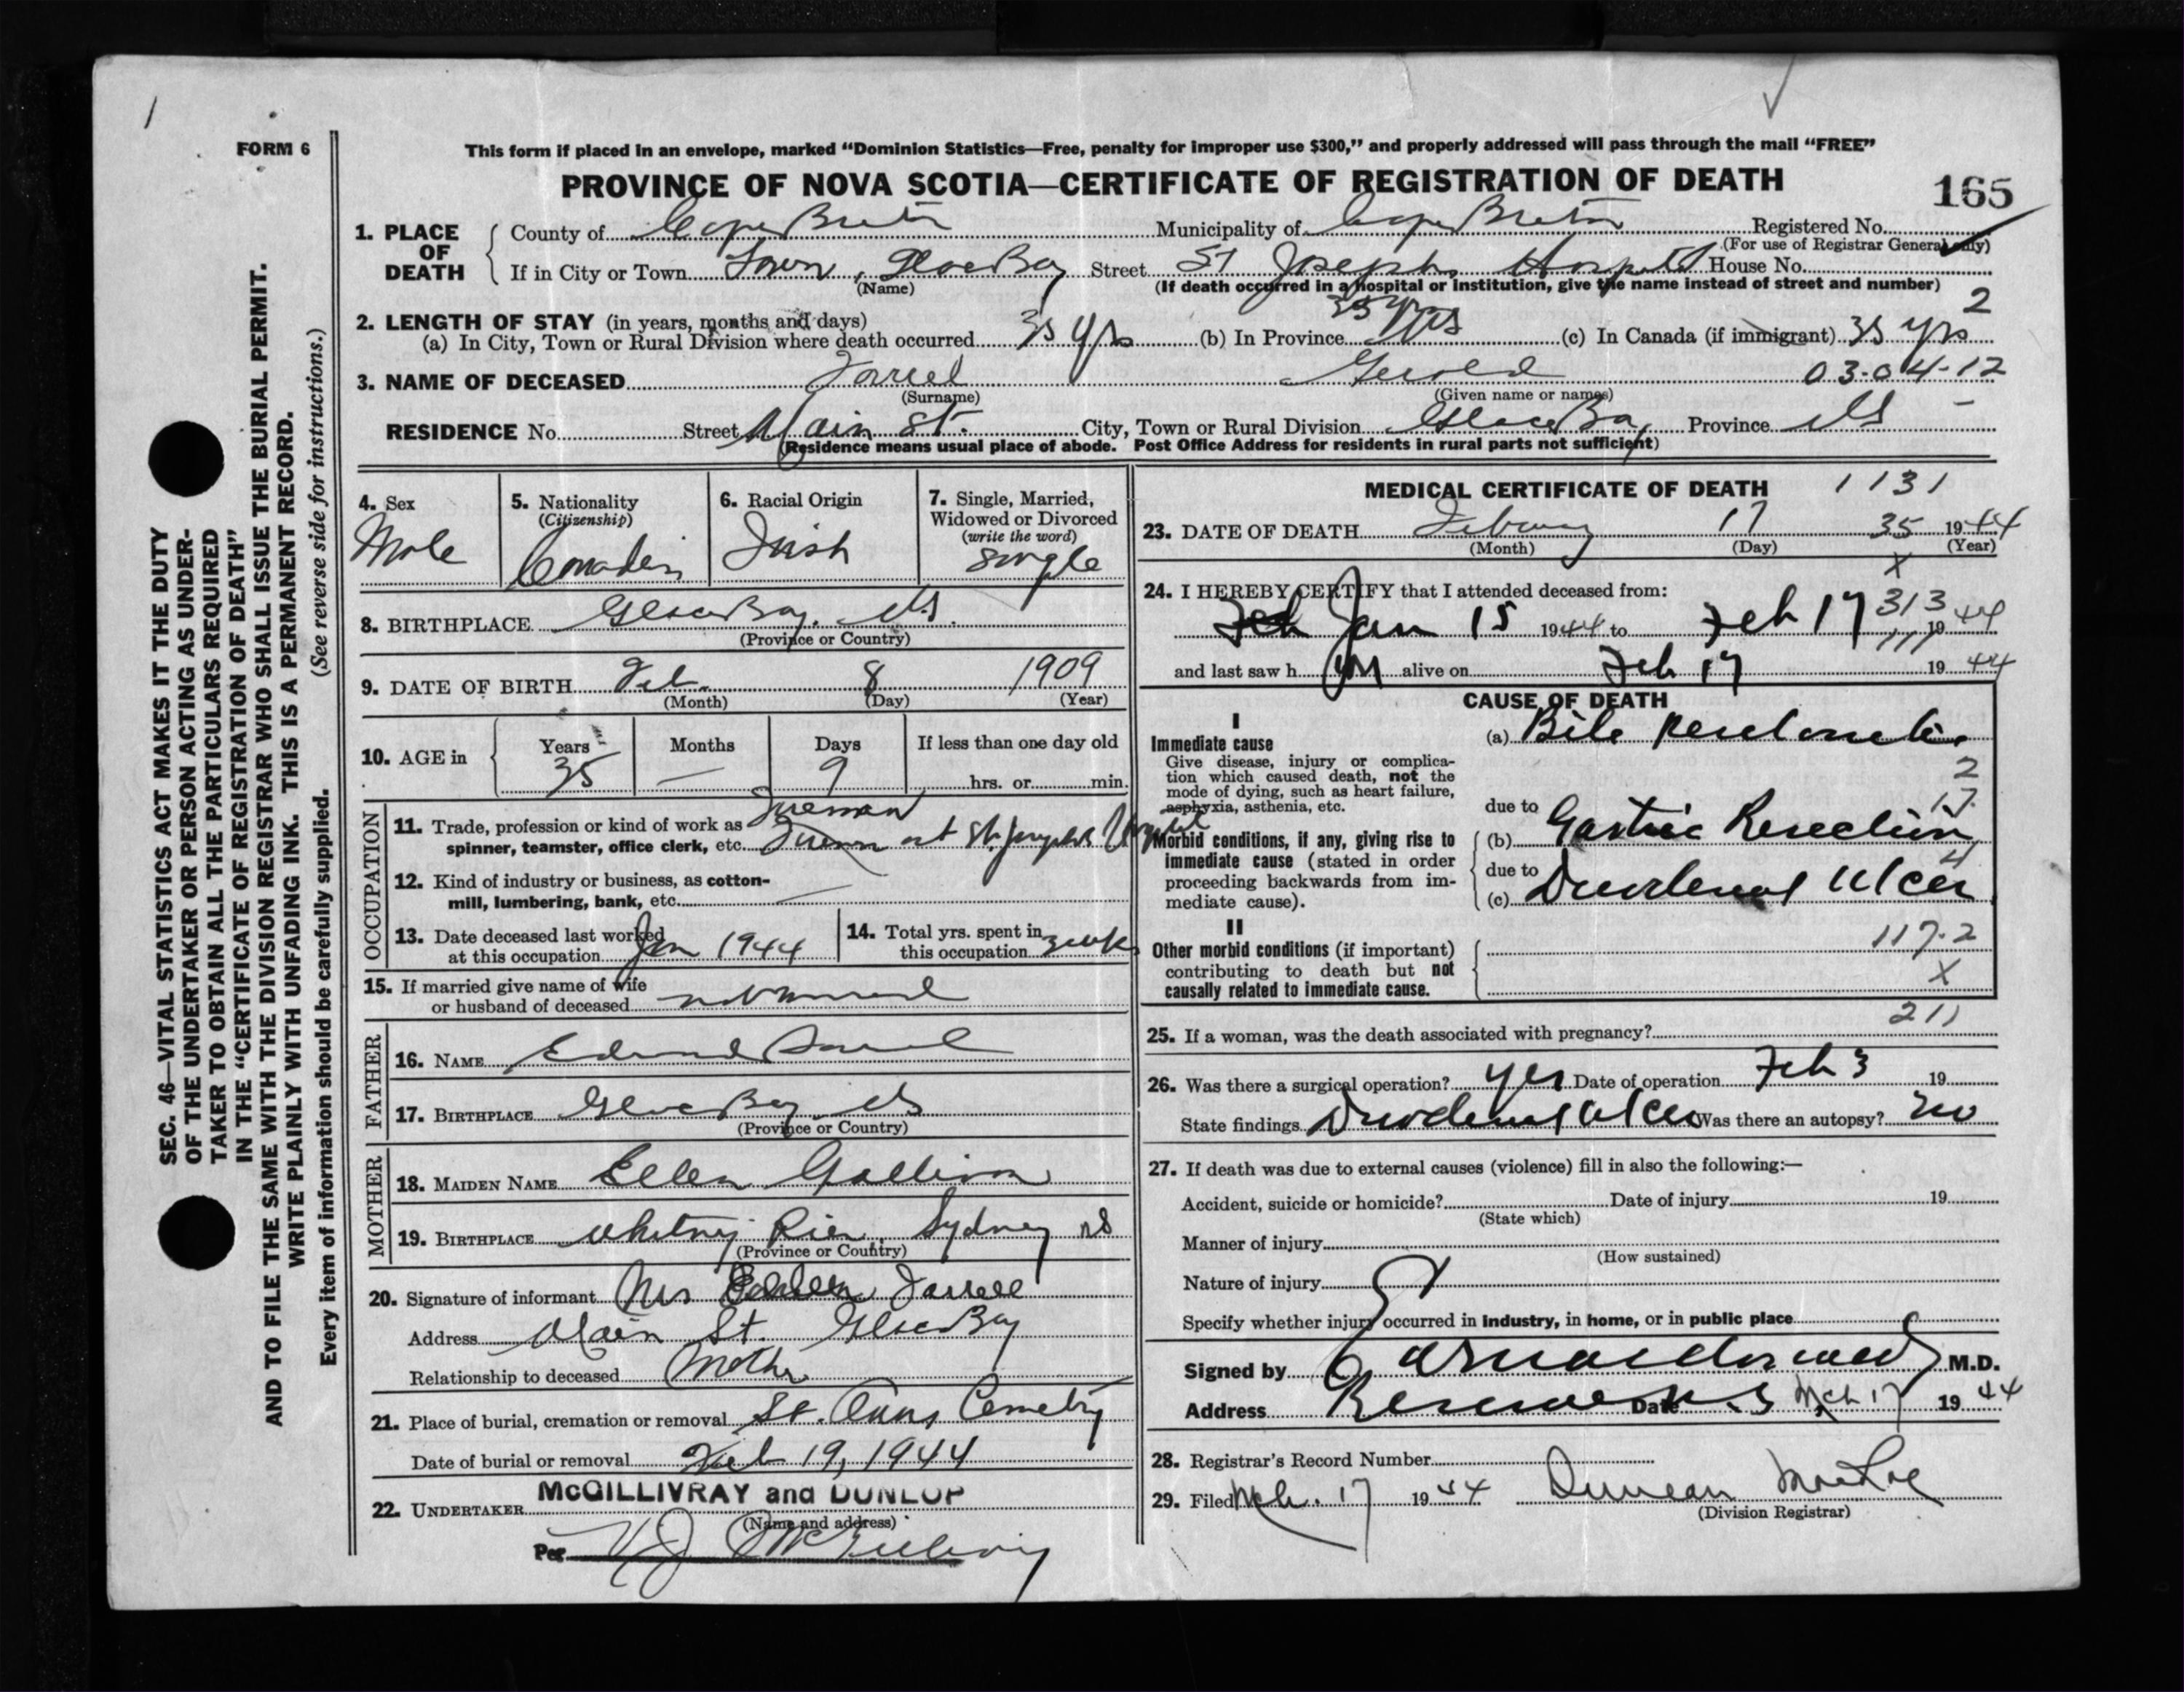 FORM 6
This form if placed in an envelope, marked “Dominion Statistics—Free, penalty for improper use $300,” and properly addressed will pass through the mail “FREE”
PROVINCE OF NOVA SCOTIA—CERTIFICATE OF REGISTRATION OF DEATH
165
1. PLACE OF DEATH
County of Cape Breton Municipality of Cape Breton Registered No.
(For use of Registrar General only)
If in City or Town Town, Glace Bay Street St Josephs Hospital House No.
(Name) (If death occurred in a hospital or institution, give the name instead of street and number)
2
2. LENGTH OF STAY (in years, months and days)
(a) In City, Town or Rural Division where death occurred 35 yrs (b) In Province 35 yrs (c) In Canada (if immigrant) 35 yrs
3. NAME OF DECEASED Farrel Gerold 03-04-12
(Surname) (Given name or names)
RESIDENCE No. Street Main St. City, Town or Rural Division Glace Bay Province NS
(Residence means usual place of abode. Post Office Address for residents in rural parts not sufficient)
SEC. 46—VITAL STATISTICS ACT MAKES IT THE DUTY
OF THE UNDERTAKER OR PERSON ACTING AS UNDER-
TAKER TO OBTAIN ALL THE PARTICULARS REQUIRED
IN THE “CERTIFICATE OF REGISTRATION OF DEATH”
AND TO FILE THE SAME WITH THE DIVISION REGISTRAR WHO SHALL ISSUE THE BURIAL PERMIT.
WRITE PLAINLY WITH UNFADING INK. THIS IS A PERMANENT RECORD.
Every item of information should be carefully supplied. (See reverse side for instructions.)
4. Sex
Male
5. Nationality
(Citizenship)
Canadin
6. Racial Origin
Irish
7. Single, Married,
Widowed or Divorced
(write the word)
Single
8. BIRTHPLACE Glace Bay. NS.
(Province or Country)
9. DATE OF BIRTH Feb. 8 1909
(Month) (Day) (Year)
10. AGE in
Years Months Days If less than one day old
35 — 9 hrs. or min.
OCCUPATION
Fireman
11. Trade, profession or kind of work as
spinner, teamster, office clerk, etc. at St. Josephs Hospital
12. Kind of industry or business, as cotton-
mill, lumbering, bank, etc.
13. Date deceased last worked
at this occupation Jan 1944
14. Total yrs. spent in
this occupation 3 wks
15. If married give name of wife
or husband of deceased not married
FATHER
16. NAME Edward Farrel
17. BIRTHPLACE Glace Bay NS
(Province or Country)
MOTHER
18. MAIDEN NAME Ellen Gallivan
19. BIRTHPLACE Whitney Pier, Sydney NS
(Province or Country)
20. Signature of informant Mrs Farrell
Address Main St. Glace Bay
Relationship to deceased Mother
21. Place of burial, cremation or removal St. Anns Cemetry
Date of burial or removal Feb 19, 1944
22. UNDERTAKER McGILLIVRAY and DUNLOP
(Name and address)
Per McGillivray
MEDICAL CERTIFICATE OF DEATH 1131
23. DATE OF DEATH February 17 35 1944
(Month) (Day) (Year)
x
24. I HEREBY CERTIFY that I attended deceased from:
313
Feb Jan 15 1944 to Feb 17 1944
111
and last saw h im alive on Feb 17 1944
CAUSE OF DEATH
I
Immediate cause
Give disease, injury or complica-
tion which caused death, not the
mode of dying, such as heart failure,
asphyxia, asthenia, etc.
(a) Bile Peritonitis
2
17.
due to
Morbid conditions, if any, giving rise to
immediate cause (stated in order
proceeding backwards from im-
mediate cause).
(b) Gastric Resection
4
due to
(c) Duodenal Ulcer
II
Other morbid conditions (if important)
contributing to death but not
causally related to immediate cause.
117.2
X
211
25. If a woman, was the death associated with pregnancy?
26. Was there a surgical operation? yes Date of operation Feb 3 19
State findings Duodenal Ulcer Was there an autopsy? no
27. If death was due to external causes (violence) fill in also the following:—
Accident, suicide or homicide? Date of injury 19
(State which)
Manner of injury
(How sustained)
Nature of injury
Specify whether injury occurred in industry, in home, or in public place
Signed by M.D.
Address Date Mch 17 1944
28. Registrar's Record Number
29. Filed Mch. 17 1944 Duncan
(Division Registrar)